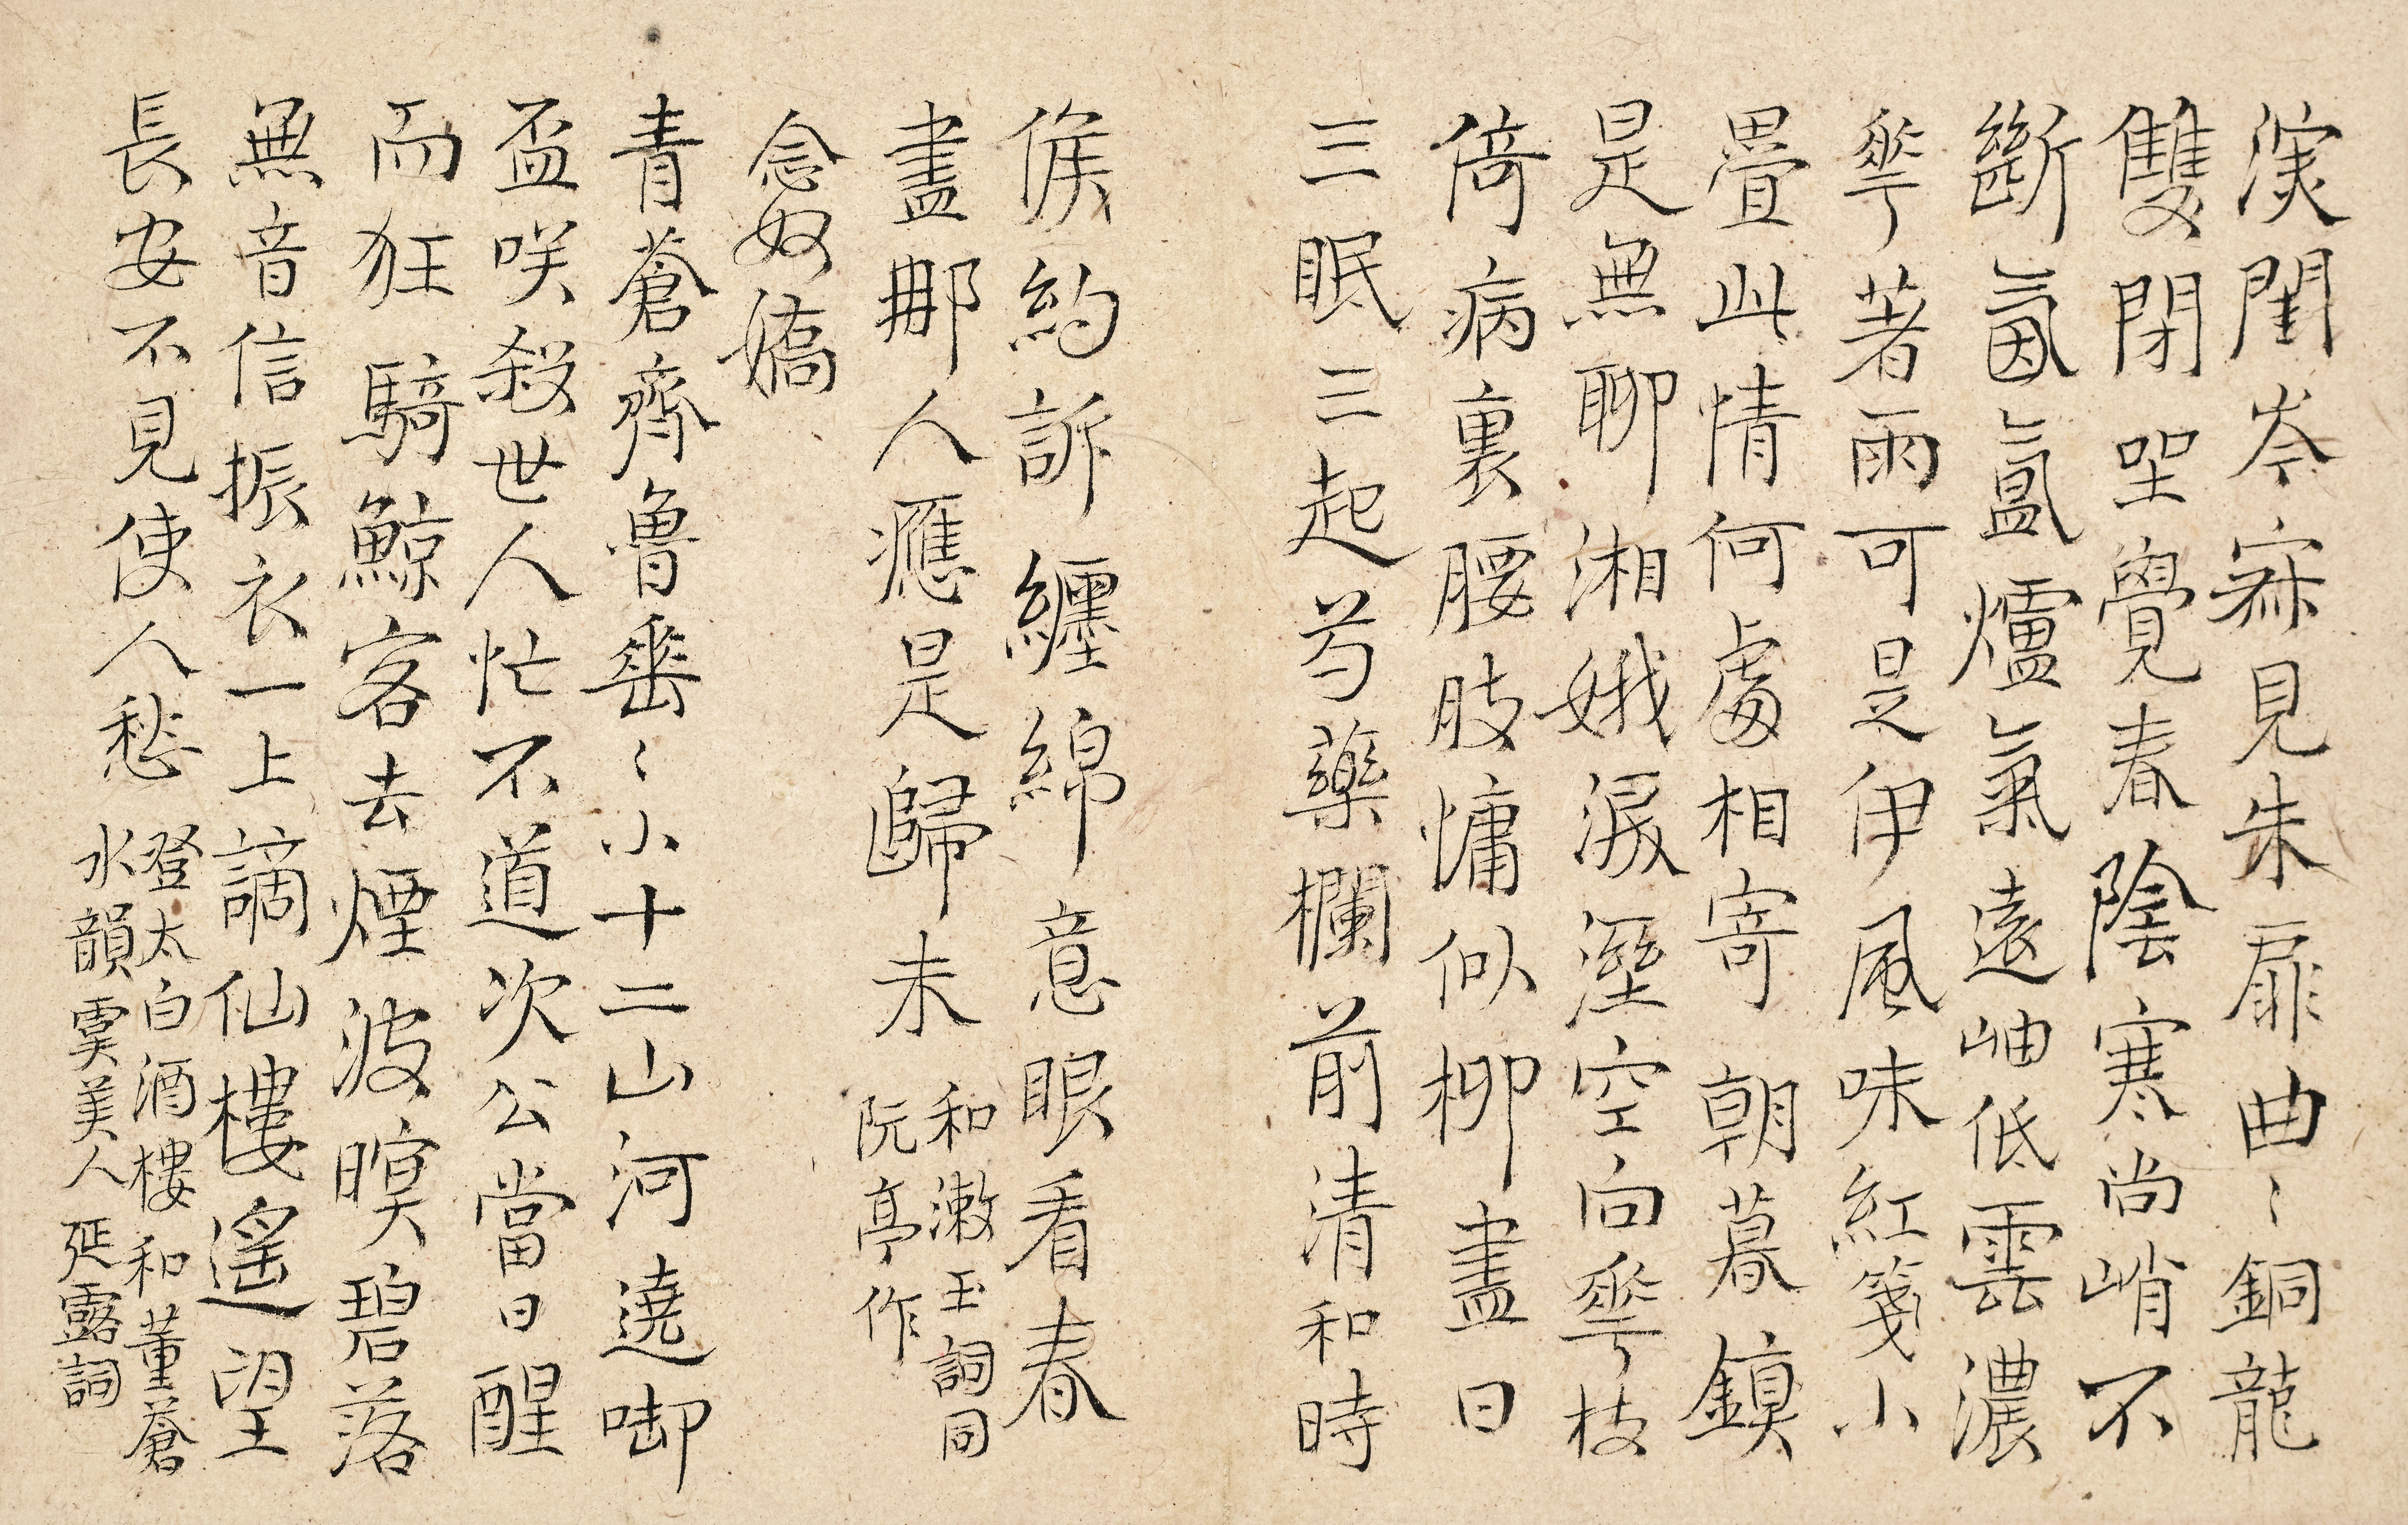 深閨岑寂見朱扉曲〻銅龍
雙閉坐覺春陰寒尚峭不
斷氤氳爐氣遠岫低雲濃
華著雨可是伊風味紅箋小
疊此情何處相寄朝暮鎮
是無聊湘娥淚溼空向華枝
倚病裏腰肢慵似柳盡日
三眠三起芍藥欄前清和時
候約訴纏綿意眼看春
盡那人應是歸未
和漱玉詞同
阮亭作
念奴嬌
青蒼齊魯垂〻小十二山河遶啣
盃咲殺世人忙不道次公當日醒
而狂騎鯨客去煙波暝碧落
無音信振衣一上謫仙樓遙望
長安不見使人愁
登太白酒樓和董蒼
水韻虞美人延露詞